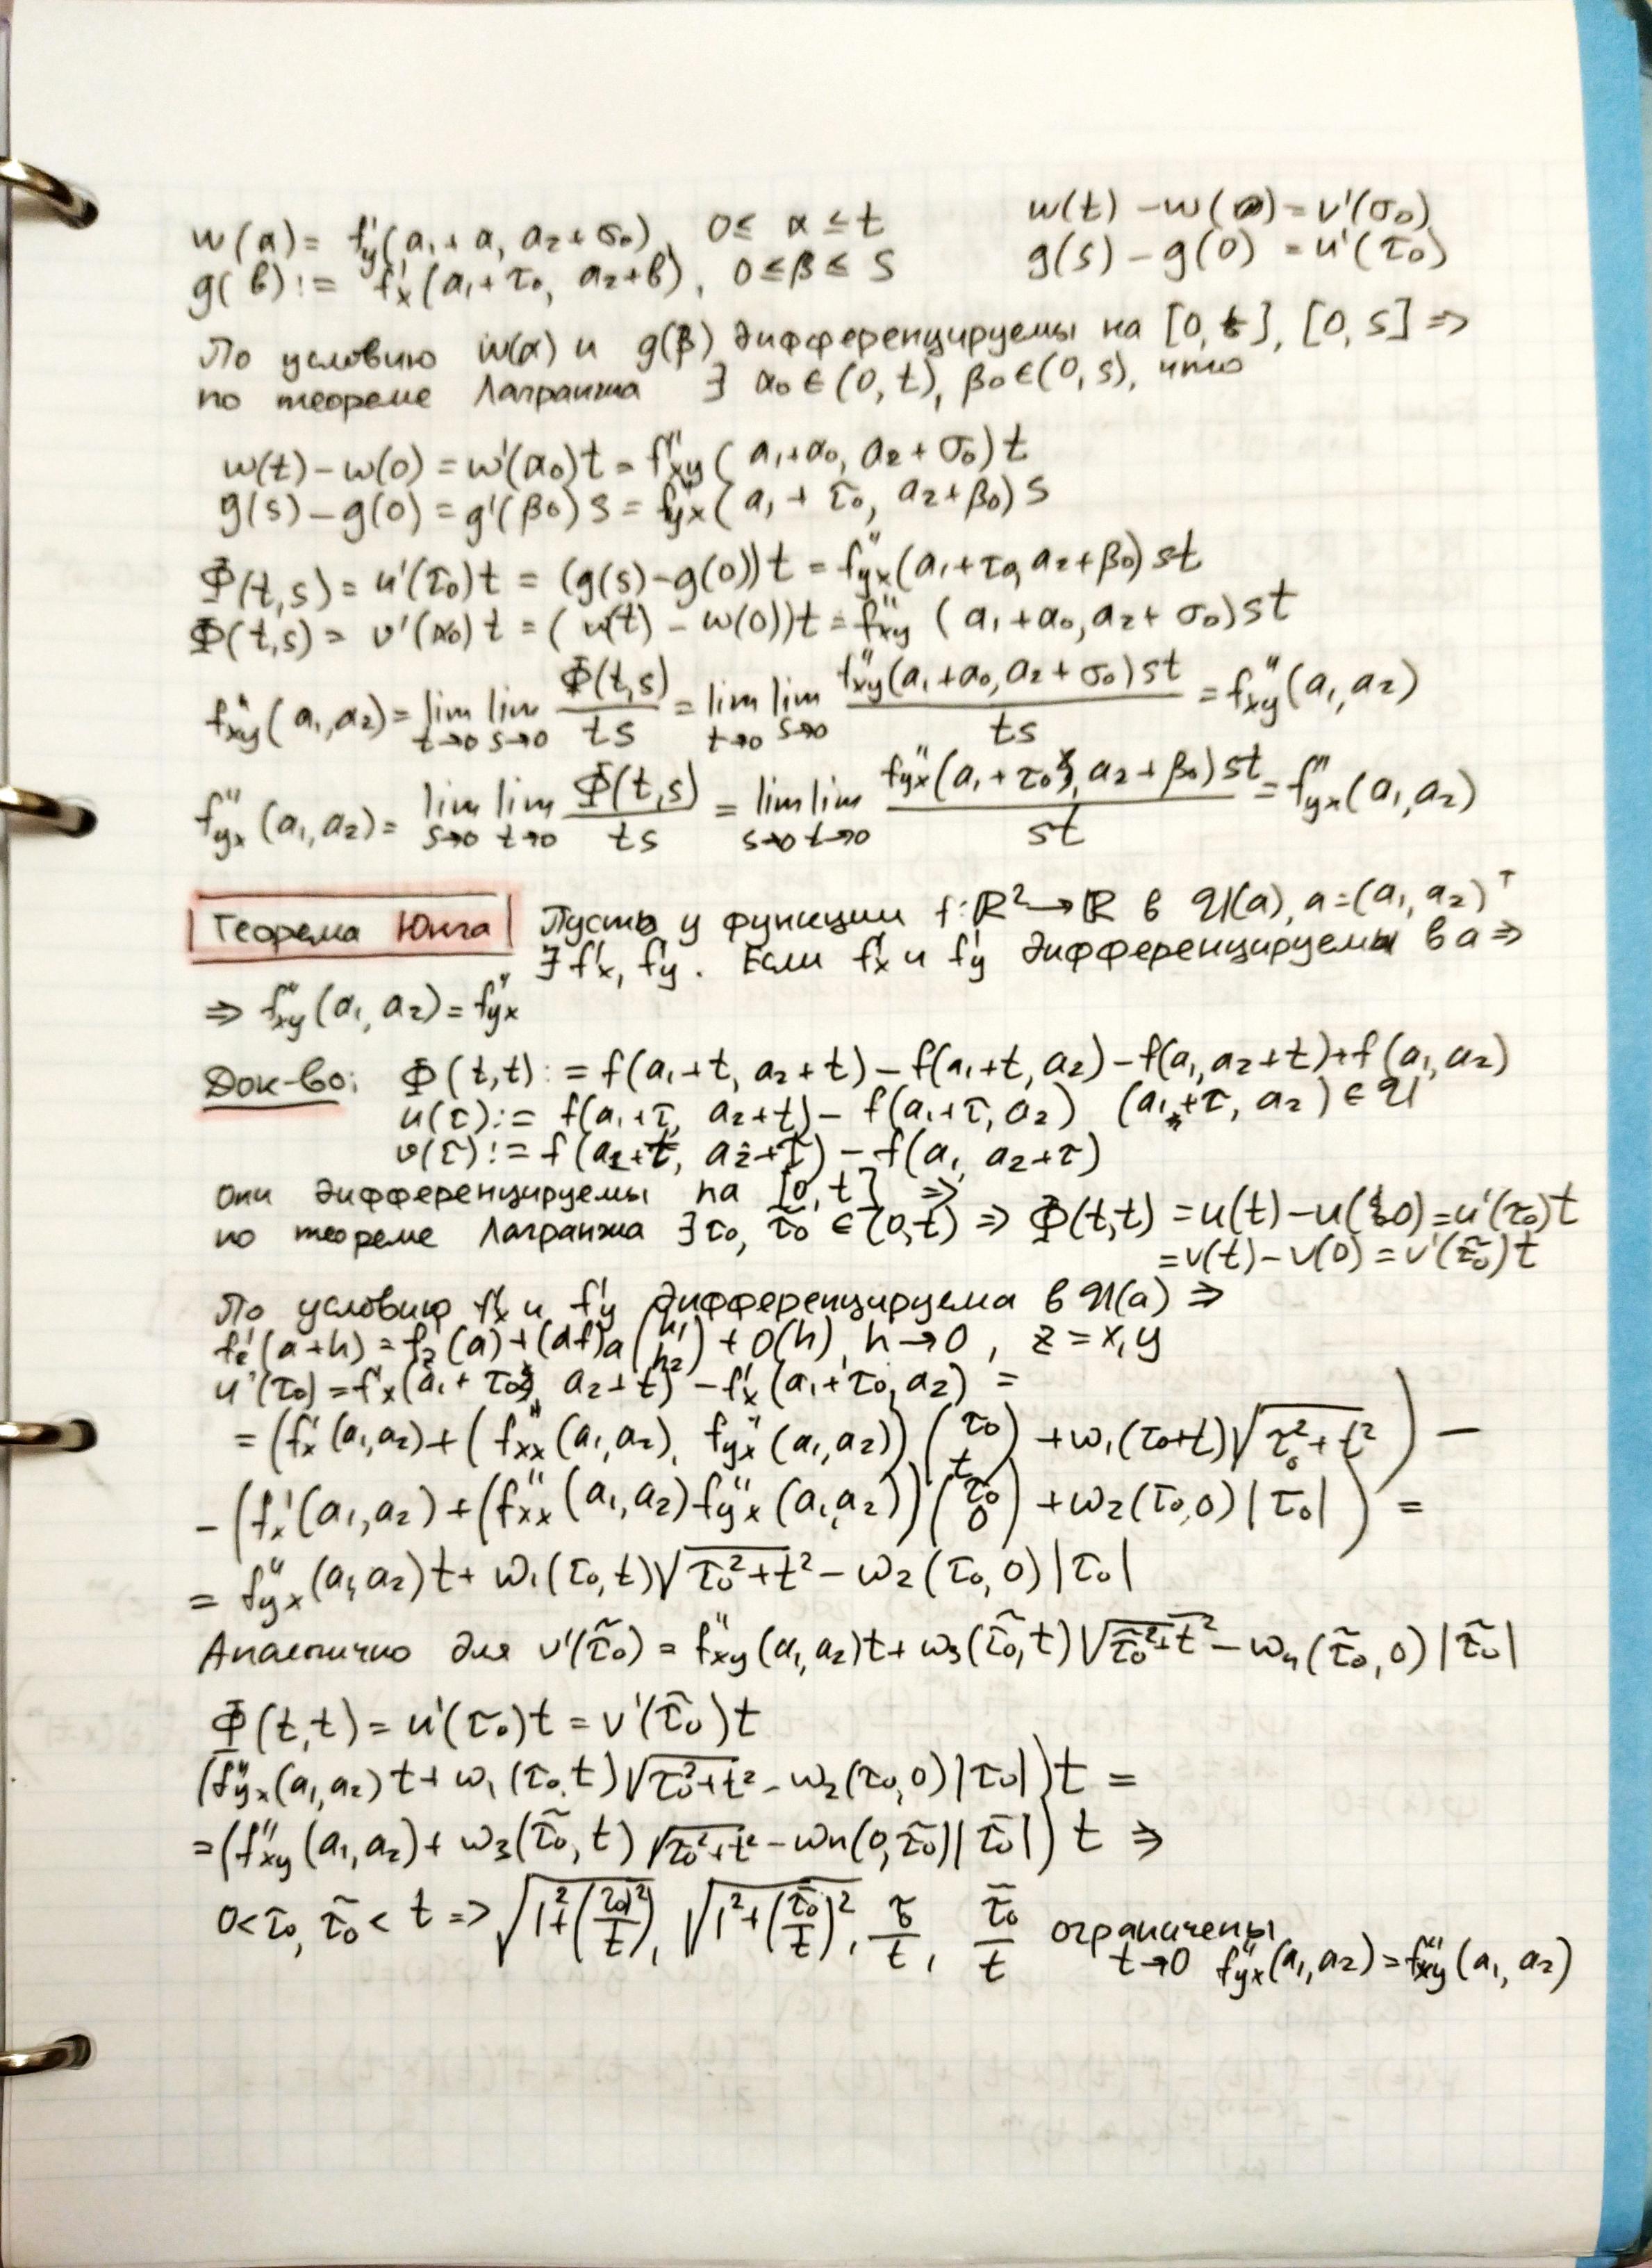 w(α) = f'y(a₁+α, a₂+σ₀), 0 ≤ α ≤ t    w(t) − w(0) = v'(σ₀)
g(β) := f'x(a₁+τ₀, a₂+β), 0 ≤ β ≤ s    g(s) − g(0) = u'(τ₀)
По условию w(α) и g(β) дифференцируемы на [0, t], [0, s] ⇒
по теореме Лагранжа ∃ α₀ ∈ (0, t), β₀ ∈ (0, s), что
w(t) − w(0) = w'(α₀)t = f''xy(a₁+α₀, a₂+σ₀)t
g(s) − g(0) = g'(β₀)s = f''yx(a₁+τ₀, a₂+β₀)s
Φ(t,s) = u'(τ₀)t = (g(s)−g(0))t = f''yx(a₁+τ₀, a₂+β₀)st
Φ(t,s) = v'(α₀)t = (w(t) − w(0))t = f''xy (a₁+α₀, a₂+σ₀)st
f''xy(a₁,a₂) = lim t→0 lim s→0 Φ(t,s)/ts = lim t→0 lim s→0 f''xy(a₁+α₀, a₂+σ₀)st/ts = f''xy(a₁,a₂)
f''yx(a₁,a₂) = lim s→0 lim t→0 Φ(t,s)/ts = lim s→0 lim t→0 f''yx(a₁+τ₀, a₂+β₀)st/st = f''yx(a₁,a₂)
Теорема Юнга Пусть у функции f: ℝ² → ℝ в U(a), a = (a₁, a₂)ᵀ
∃ f'x, f'y. Если f'x и f'y дифференцируемы в a ⇒
⇒ f''xy(a₁,a₂) = f''yx
Док-во: Φ(t,t) := f(a₁+t, a₂+t) − f(a₁+t, a₂) − f(a₁, a₂+t) + f(a₁,a₂)
u(τ) := f(a₁+τ, a₂+t) − f(a₁+τ, a₂) (a₁+τ, a₂) ∈ U
v(τ) := f(a₁+t, a₂+τ) − f(a₁, a₂+τ)
они дифференцируемы на [0,t] ⇒
по теореме Лагранжа ∃ τ₀, τ̃₀ ∈ (0,t) ⇒ Φ(t,t) = u(t) − u(0) = u'(τ₀)t
= v(t) − v(0) = v'(τ̃₀)t
По условию f'x и f'y дифференцируема в U(a) ⇒
f'z(a+h) = f'z(a) + (df)a (h₁ h₂) + o(h), h → 0, z = x,y
u'(τ₀) = f'x(a₁+τ₀, a₂+t) − f'x(a₁+τ₀, a₂) =
= (f'x(a₁,a₂) + (f''xx(a₁,a₂), f''yx(a₁,a₂)) (τ₀ t) + ω₁(τ₀+t)√(τ₀²+t²)) −
− (f'x(a₁,a₂) + (f''xx(a₁,a₂) f''yx(a₁,a₂)) (τ₀ 0) + ω₂(τ₀,0)|τ₀|) =
= f''yx(a₁,a₂)t + ω₁(τ₀,t)√(τ₀²+t²) − ω₂(τ₀,0)|τ₀|
Аналогично для v'(τ̃₀) = f''xy(a₁,a₂)t + ω₃(τ̃₀,t)√(τ̃₀²+t²) − ω₄(τ̃₀,0)|τ̃₀|
Φ(t,t) = u'(τ₀)t = v'(τ̃₀)t
(f''yx(a₁,a₂)t + ω₁(τ₀,t)√(τ₀²+t²) − ω₂(τ₀,0)|τ₀|)t =
= (f''xy(a₁,a₂) + ω₃(τ̃₀,t)√(τ̃₀²+t²) − ω₄(0,τ̃₀)|τ̃₀|)t ⇒
0 < τ₀, τ̃₀ < t ⇒ √(1²+(τ₀/t)²), √(1²+(τ̃₀/t)²), τ₀/t, τ̃₀/t ограничены
t→0 f''yx(a₁,a₂) = f''xy(a₁,a₂)